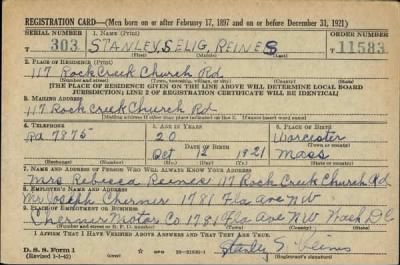 REGISTRATION CARD—(Men born on or after February 17, 1897 and on or before December 31, 1921)
SERIAL NUMBER 1. NAME (Print) ORDER NUMBER
T 303 STANLEY SELIG REINES 11583
(First) (Middle) (Last)
2. PLACE OF RESIDENCE (Print)
117 Rock Creek Church Rd
(Number and street) (Town, township, village, or city) (County) (State)
[THE PLACE OF RESIDENCE GIVEN ON THE LINE ABOVE WILL DETERMINE LOCAL BOARD
JURISDICTION; LINE 2 OF REGISTRATION CERTIFICATE WILL BE IDENTICAL]
3. MAILING ADDRESS
117 Rock Creek Church Rd
[Mailing address if other than place indicated on line 2. If same insert word same]
4. TELEPHONE 5. AGE IN YEARS 6. PLACE OF BIRTH
Ra 7875 20 Worcester
DATE OF BIRTH (Town or county)
Oct 12 1921 Mass
(Exchange) (Number) (Mo.) (Day) (Yr.) (State or country)
7. NAME AND ADDRESS OF PERSON WHO WILL ALWAYS KNOW YOUR ADDRESS
Mrs Rebecca Reines 117 Rock Creek Church Rd
8. EMPLOYER'S NAME AND ADDRESS
Mr Joseph Cherner 1781 Fla Ave NW
9. PLACE OF EMPLOYMENT OR BUSINESS
Cherner Motor Co 1781 Fla Ave NW Wash DC
(Number and street or R. F. D. number) (Town) (County) (State)
I AFFIRM THAT I HAVE VERIFIED ABOVE ANSWERS AND THAT THEY ARE TRUE.
D. S. S. Form 1
(Revised 1-1-42) (over) Stanley S. Reines
(Registrant's signature)